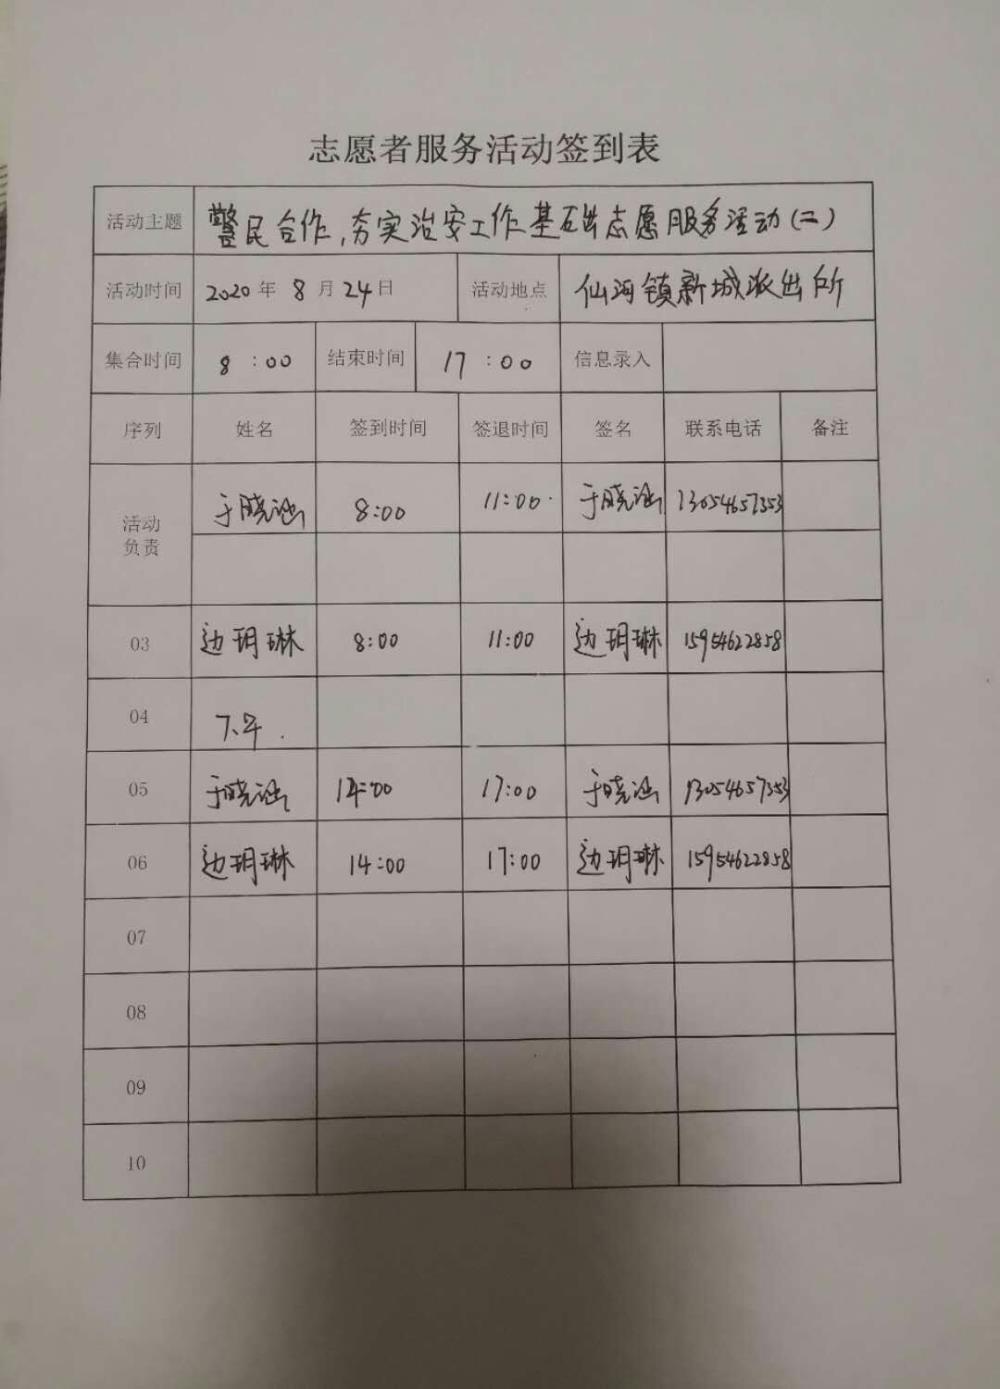 志愿者服务活动签到表
活动主题 警民合作,夯实治安工作基础志愿服务活动(二)
活动时间 2020年 8 月 24日 活动地点 仙河镇新城派出所
集合时间 8:00 结束时间 17:00 信息录入
序列 姓名 签到时间 签退时间 签名 联系电话 备注
活动
负责
于晓涵 8:00 11:00 于晓涵 13054657353
03 边玥琳 8:00 11:00 边玥琳 15954622858
04 下午.
05 于晓涵 14:00 17:00 于晓涵 13054657353
06 边玥琳 14:00 17:00 边玥琳 15954622858
07
08
09
10